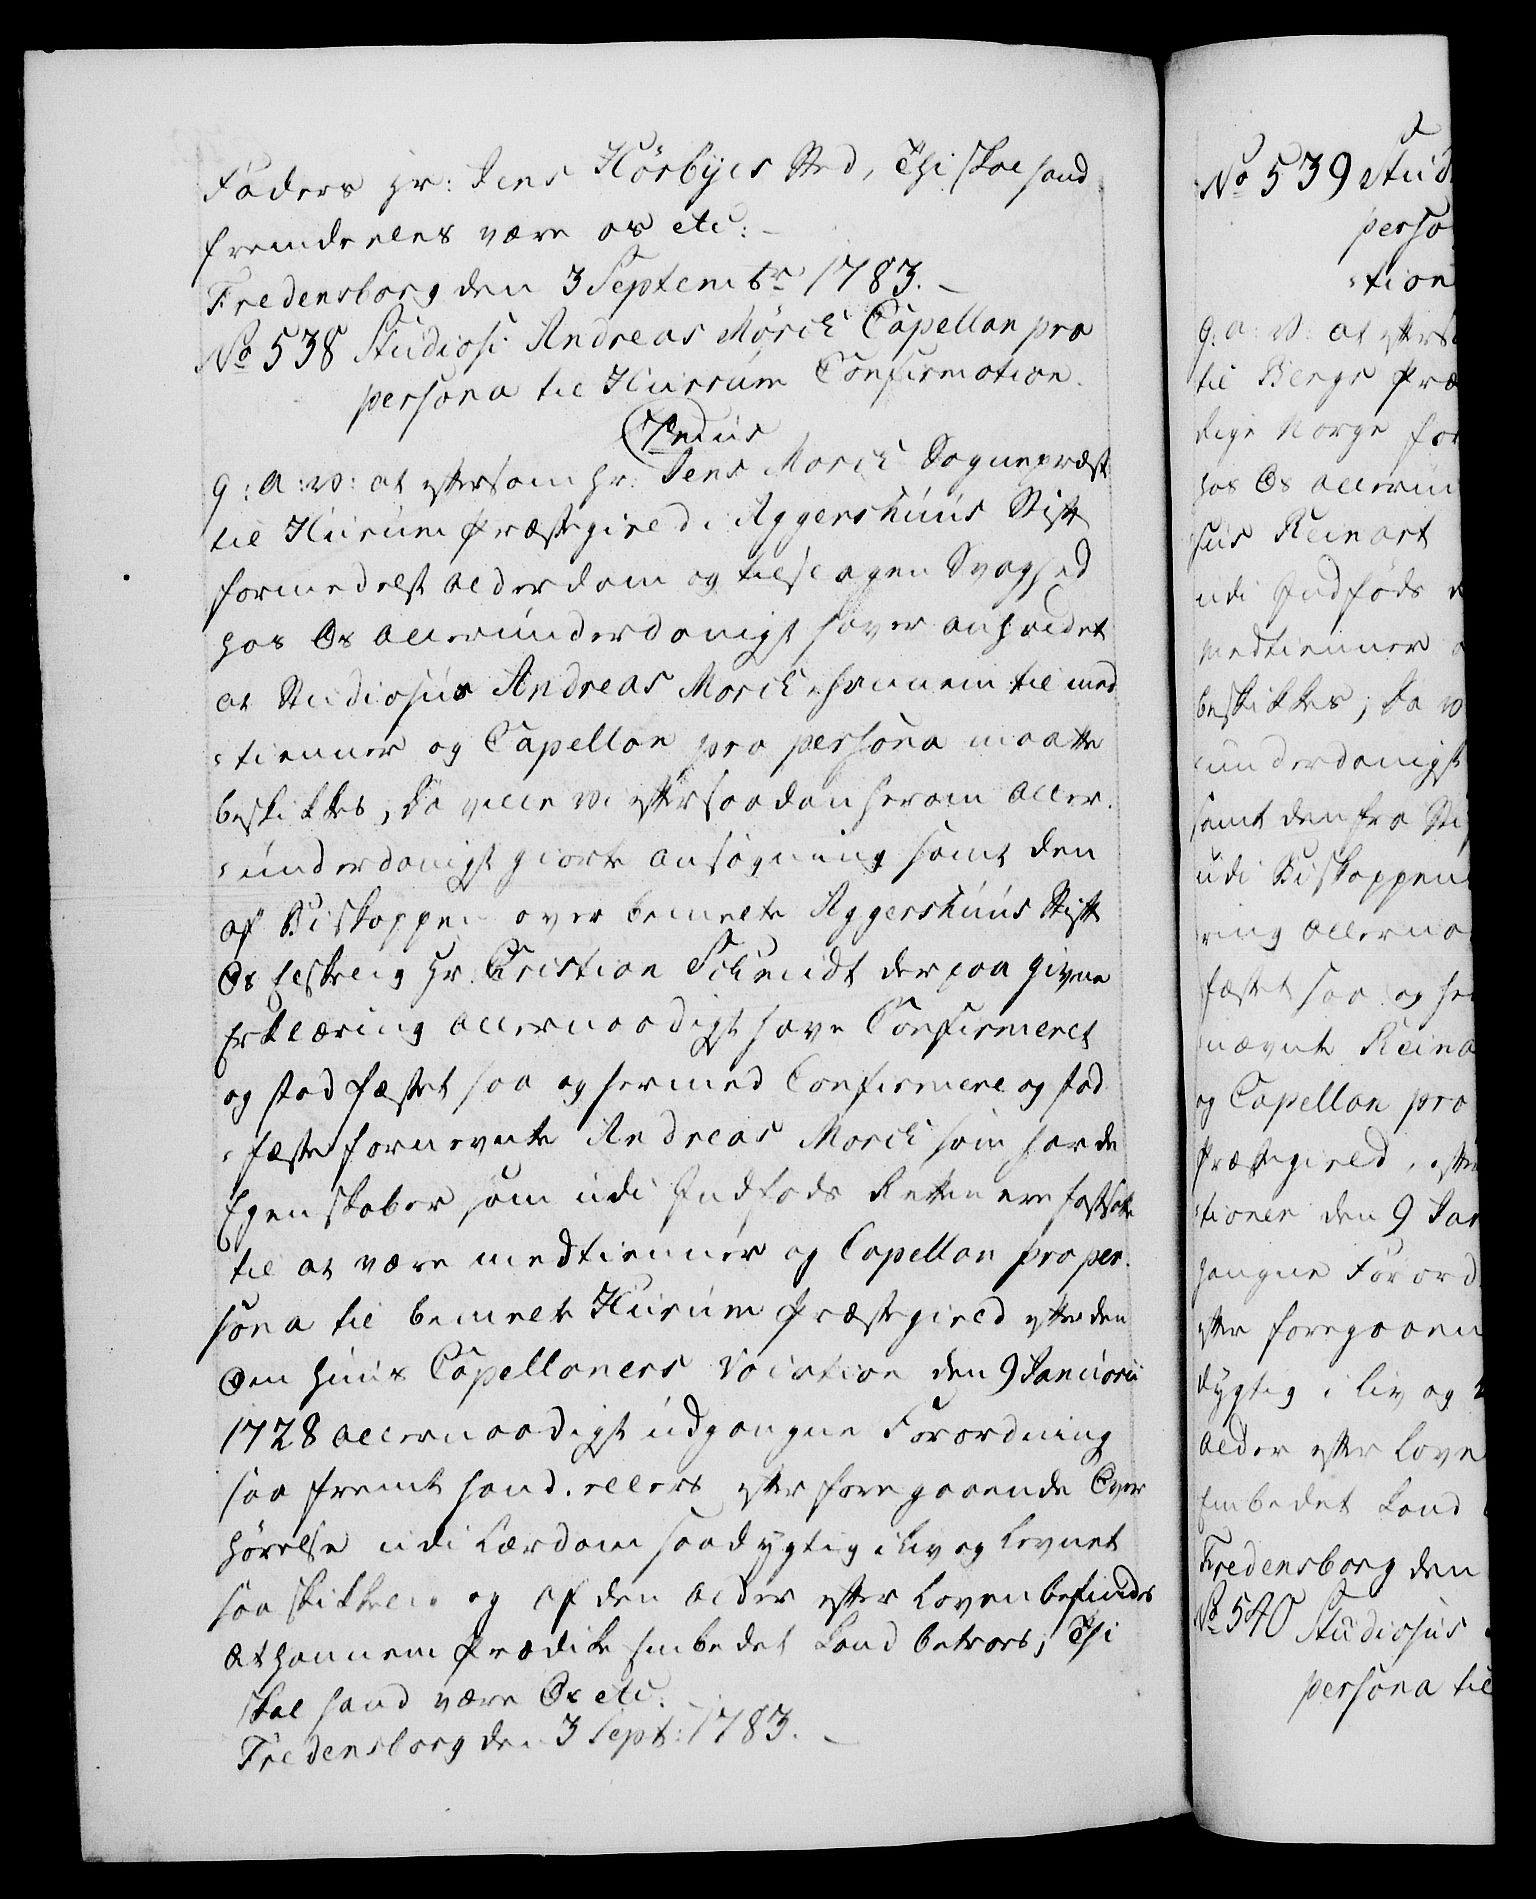 Faders Hr: Jens Hörbyes Sted, Thi skal hand
fremdeeles være os etc:
Fredensborg den 3 Septembr 1783.
No 538 Studiosi Andreas Mørch Capellan pro
persona til Hurrum Confirmation.
G: A: V: at eftersom Hr: Jens Morch Sognepræst
til Hurum Præstegield i Aggershuus Stift
formedelst Alderdom og tilslagen Svaghed
hos Os allerunderdanigst haver anholdet
at Studiosus Andreas Morch hannem til med
-tienner og Capellan pro persona maatte
beskikkes, Da ville vi efter saadan herom aller-
-underdanigst giorte ansøgning samt den
af Biskoppen over bemelte Aggershuus Stift
Os Elskelig Hr: Cristian Schmidt derpaa givne
Erklæring allernaadigst have Confirmeret
og stadfæstet saa og hermed Confirmere og stad
-fæste fornevnte Andreas Morch som har de
Egenskaber som udi Indføds Retten ere fastsatte
til at være medtienner og Capellan pro per-
sona til bemelte Hurum Præstegield efter den
Om Huus Capellaners Vocation den 9 Januarii
1728 allernaadigst udgangne Forordning
saa fremt hand ellers efter foregaaende Over
hørelse udi Lærdom saa dygtig i Liv og Levnet
saa skikkelig og af den Alder efter Loven befindes
At hannem Prædike Embedet kand betroes; Thi
skal hand være Os etc.
Fredensborg den 3 Sept: 1783.
No 539 Stud
perso
-tion
G: A: V: at efters
til Bergs Præ
Rige Norge for
hos Os allerun
sus Reinart
udi Indføds R
Medtienner o
beskikkes; Da v
-underdanigst
samt den fra Sti
udi Biskoppen
ring allerna
fæstet saa og her
nævnte Reina
og Capellan pro
Præstegield, efter
tioner den 9 Jan
gangne Forord
efter foregaaen
dygtig i Liv og
Alder efter Love
Embedet kand
Fredensborg den
No 540 Studiosus
persona til